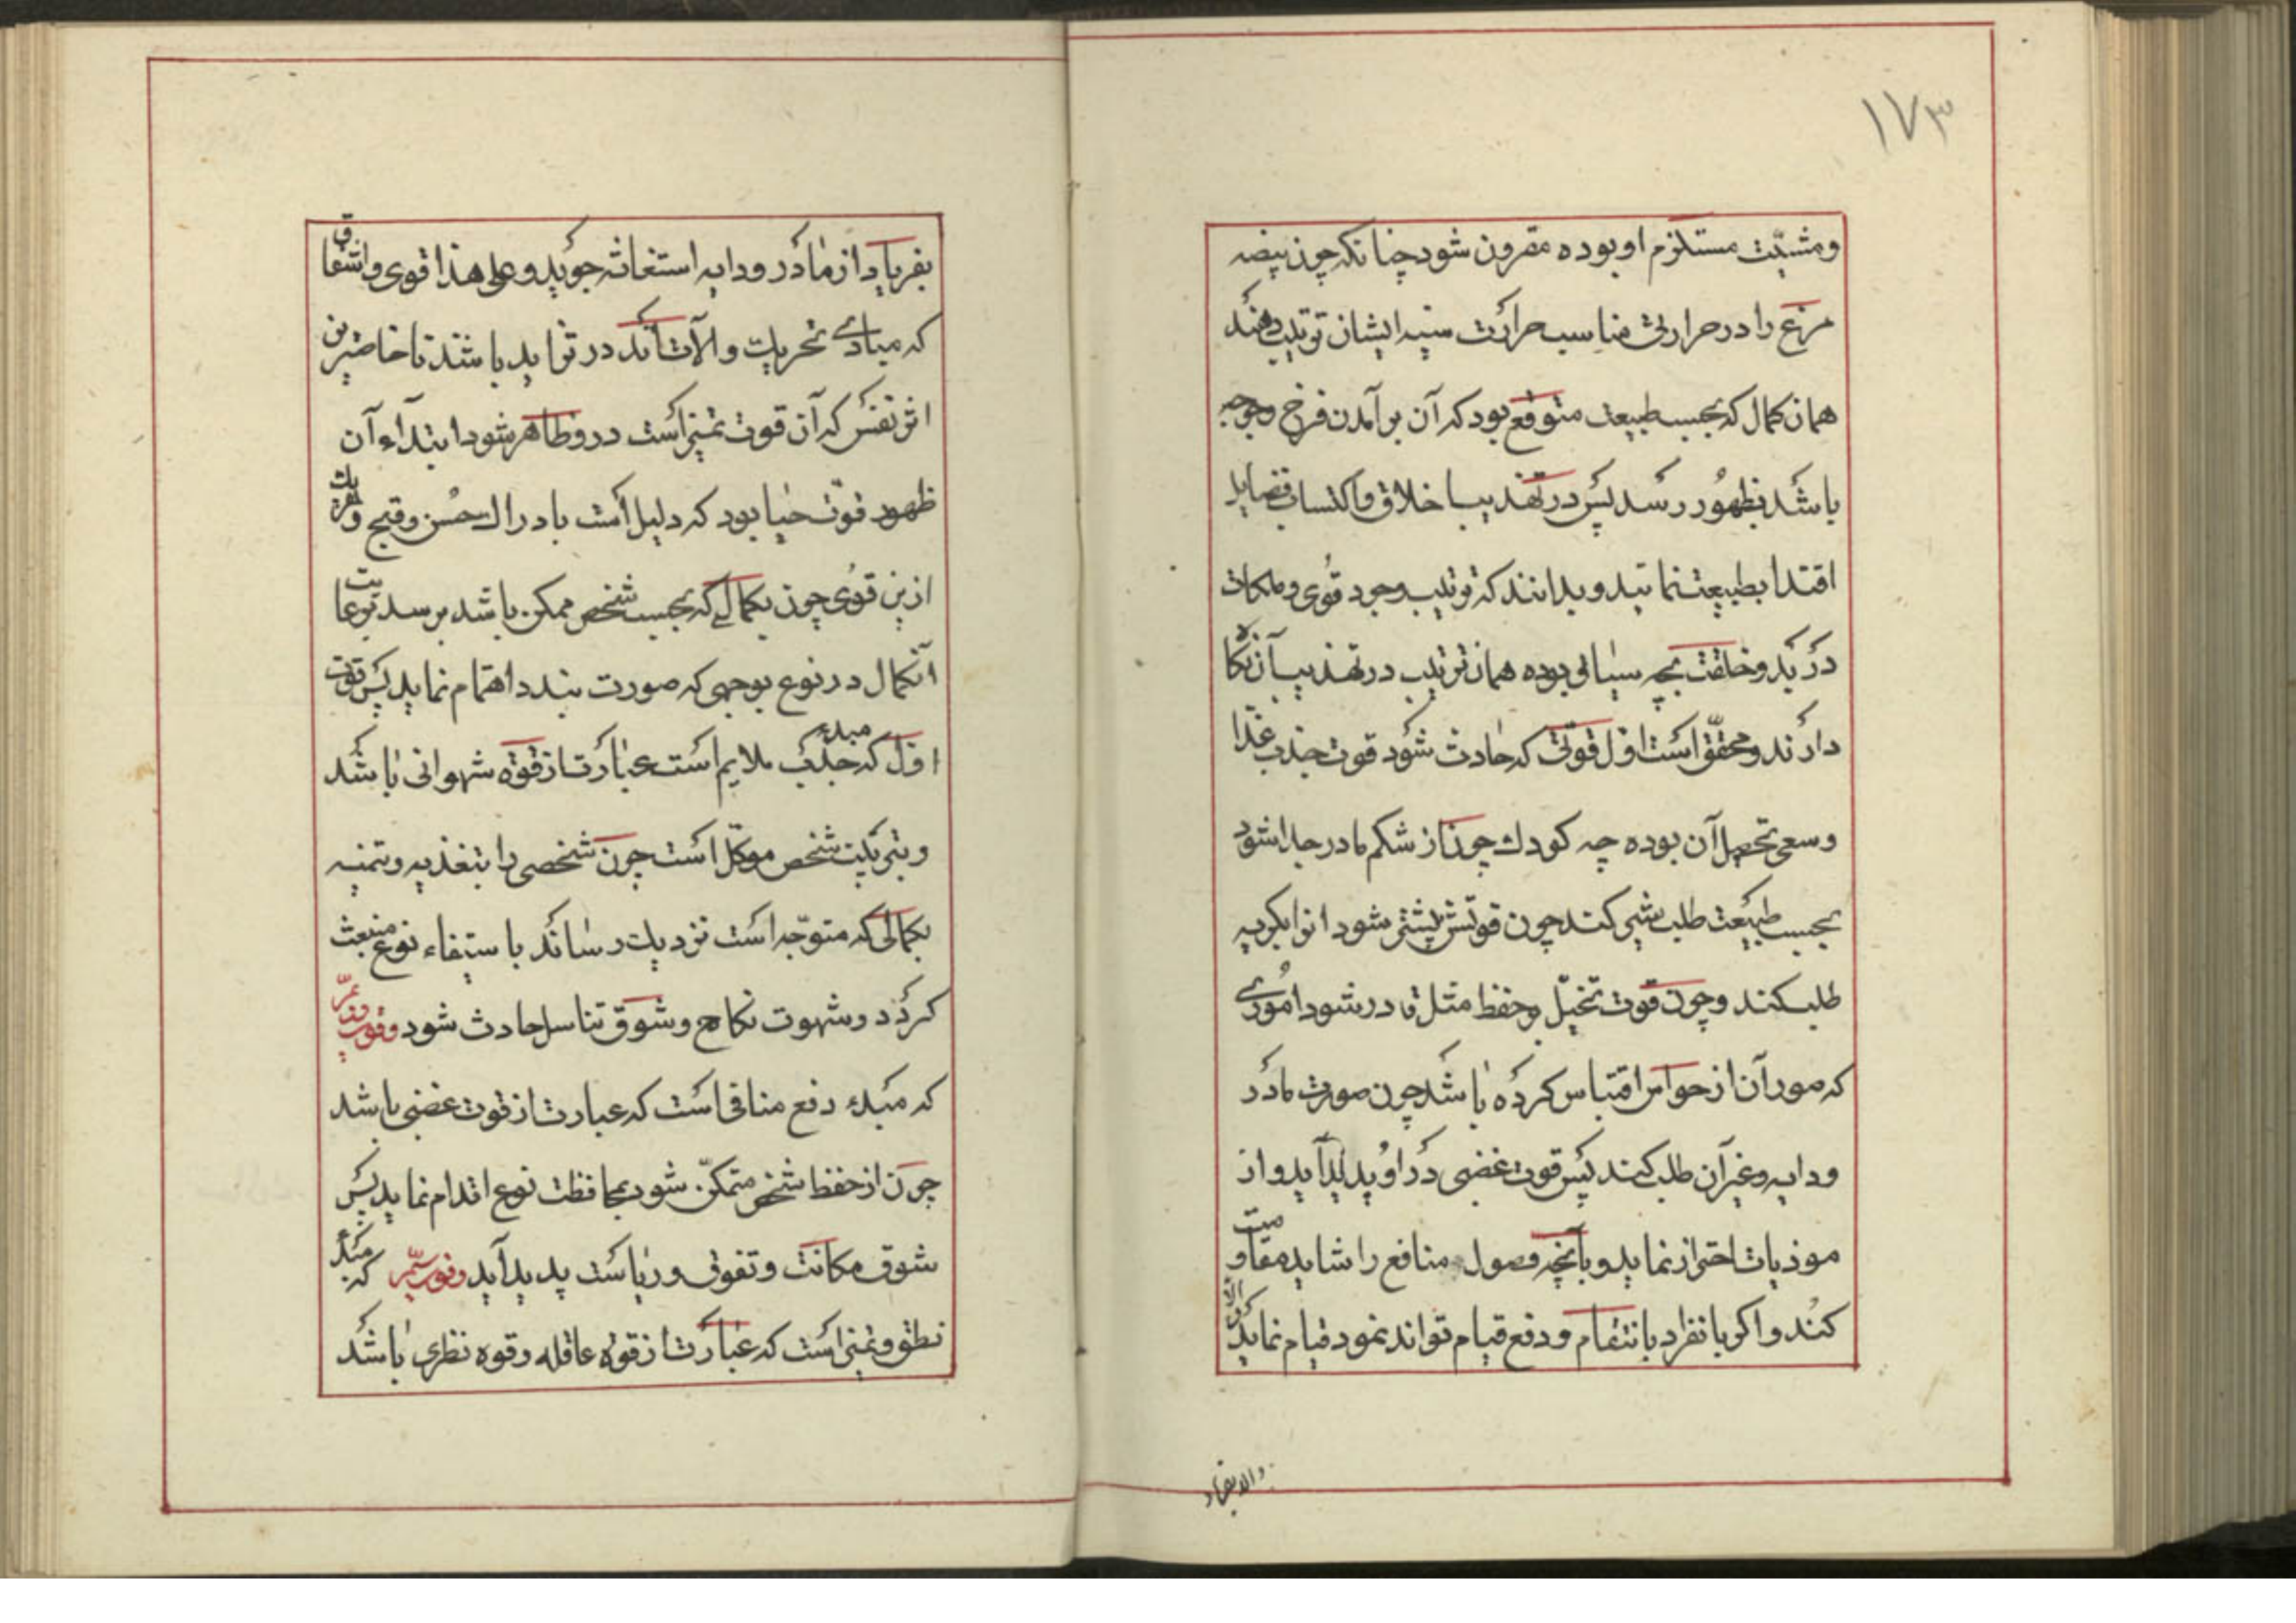 ۱۷۳
ومشیّت مستلزم او بوده مقرون شود چنانکه چون بیضه
مرغ را در حرارتی مناسب حرارت سینه ایشان ترتیب دهند
همان کمال که بحسب طبیعت متوقع بود که آن برآمدن فرخ وجوجه
باشد بظهور رسد پس در تهذیب اخلاق واکتساب فضایل
اقتدا بطبیعت نمایند وبدانند که ترتیب وجود قوی وملکات
در بدو خلقت بچه سیاقی بوده همان ترتیب در تهذیب آن نگاه
دارند ومحقّق است اوّل قوتی که حادث شود قوت جذب غذا
وسعی تحصیل آن بوده چه کودک چون از شکم مادر جدا شود
بحسب طبیعت طلب شیر کند چون قوتش بیشتر شود انرا بگریه
طلب کند وچون قوت تخیّل وحفظ مثل قادر شود اموری
که صور آن از حواس اقتباس کرده باشد چون صورت مادر
ودایه وغیر آن طلب کند پس قوت غضبی در او پدید آید واز
موذیات احتراز نماید وبآنچه وصول منافع را شاید مقاومت
کند واگر بانفراد بانتقام ودفع قیام تواند نمود قیام نماید والا
والا بفریاد
بفریاد از مادر ودایه استغاثه جوید وعلی هذا قوی واشفاق
که مبادی تحریک والآت‌اند در تزاید باشند تا خاصترین
اثر نفس که آن قوت تمیز است در و ظاهر شود ابتداء آن
ظهور قوّت حیا بود که دلیل است بادراک حسن وقبح وهریک
ازین قوی چون بکمالی که بحسب شخص ممکن باشد برسد برعایت
آنکمال در نوع بوجهی که صورت بندد اهتمام نماید پس قوت
اوّل که مبدء جذب ملایم است عبارت از قوّه شهوانی باشد
وبتربیت شخص موکّل است چون شخصی را بتغذیه وتنمیه
بکمالی که متوّجه است نزدیک رساند باستیفاء نوع منبعث
گردد وشهوت نکاح وشوق تناسل حادث شود وقوت دویّم
که مبدء دفع منافی است که عبارت از قوت غضبی باشد
چون از حفظ شخص متمکّن شود بمحافظت نوع اقدام نماید پس
شوق مکانت وتفوق وریاست پدید آید وقوت سیّم که مبدء
نطق وتمیز است که عبارت از قوّه عاقله وقوه نظری باشد